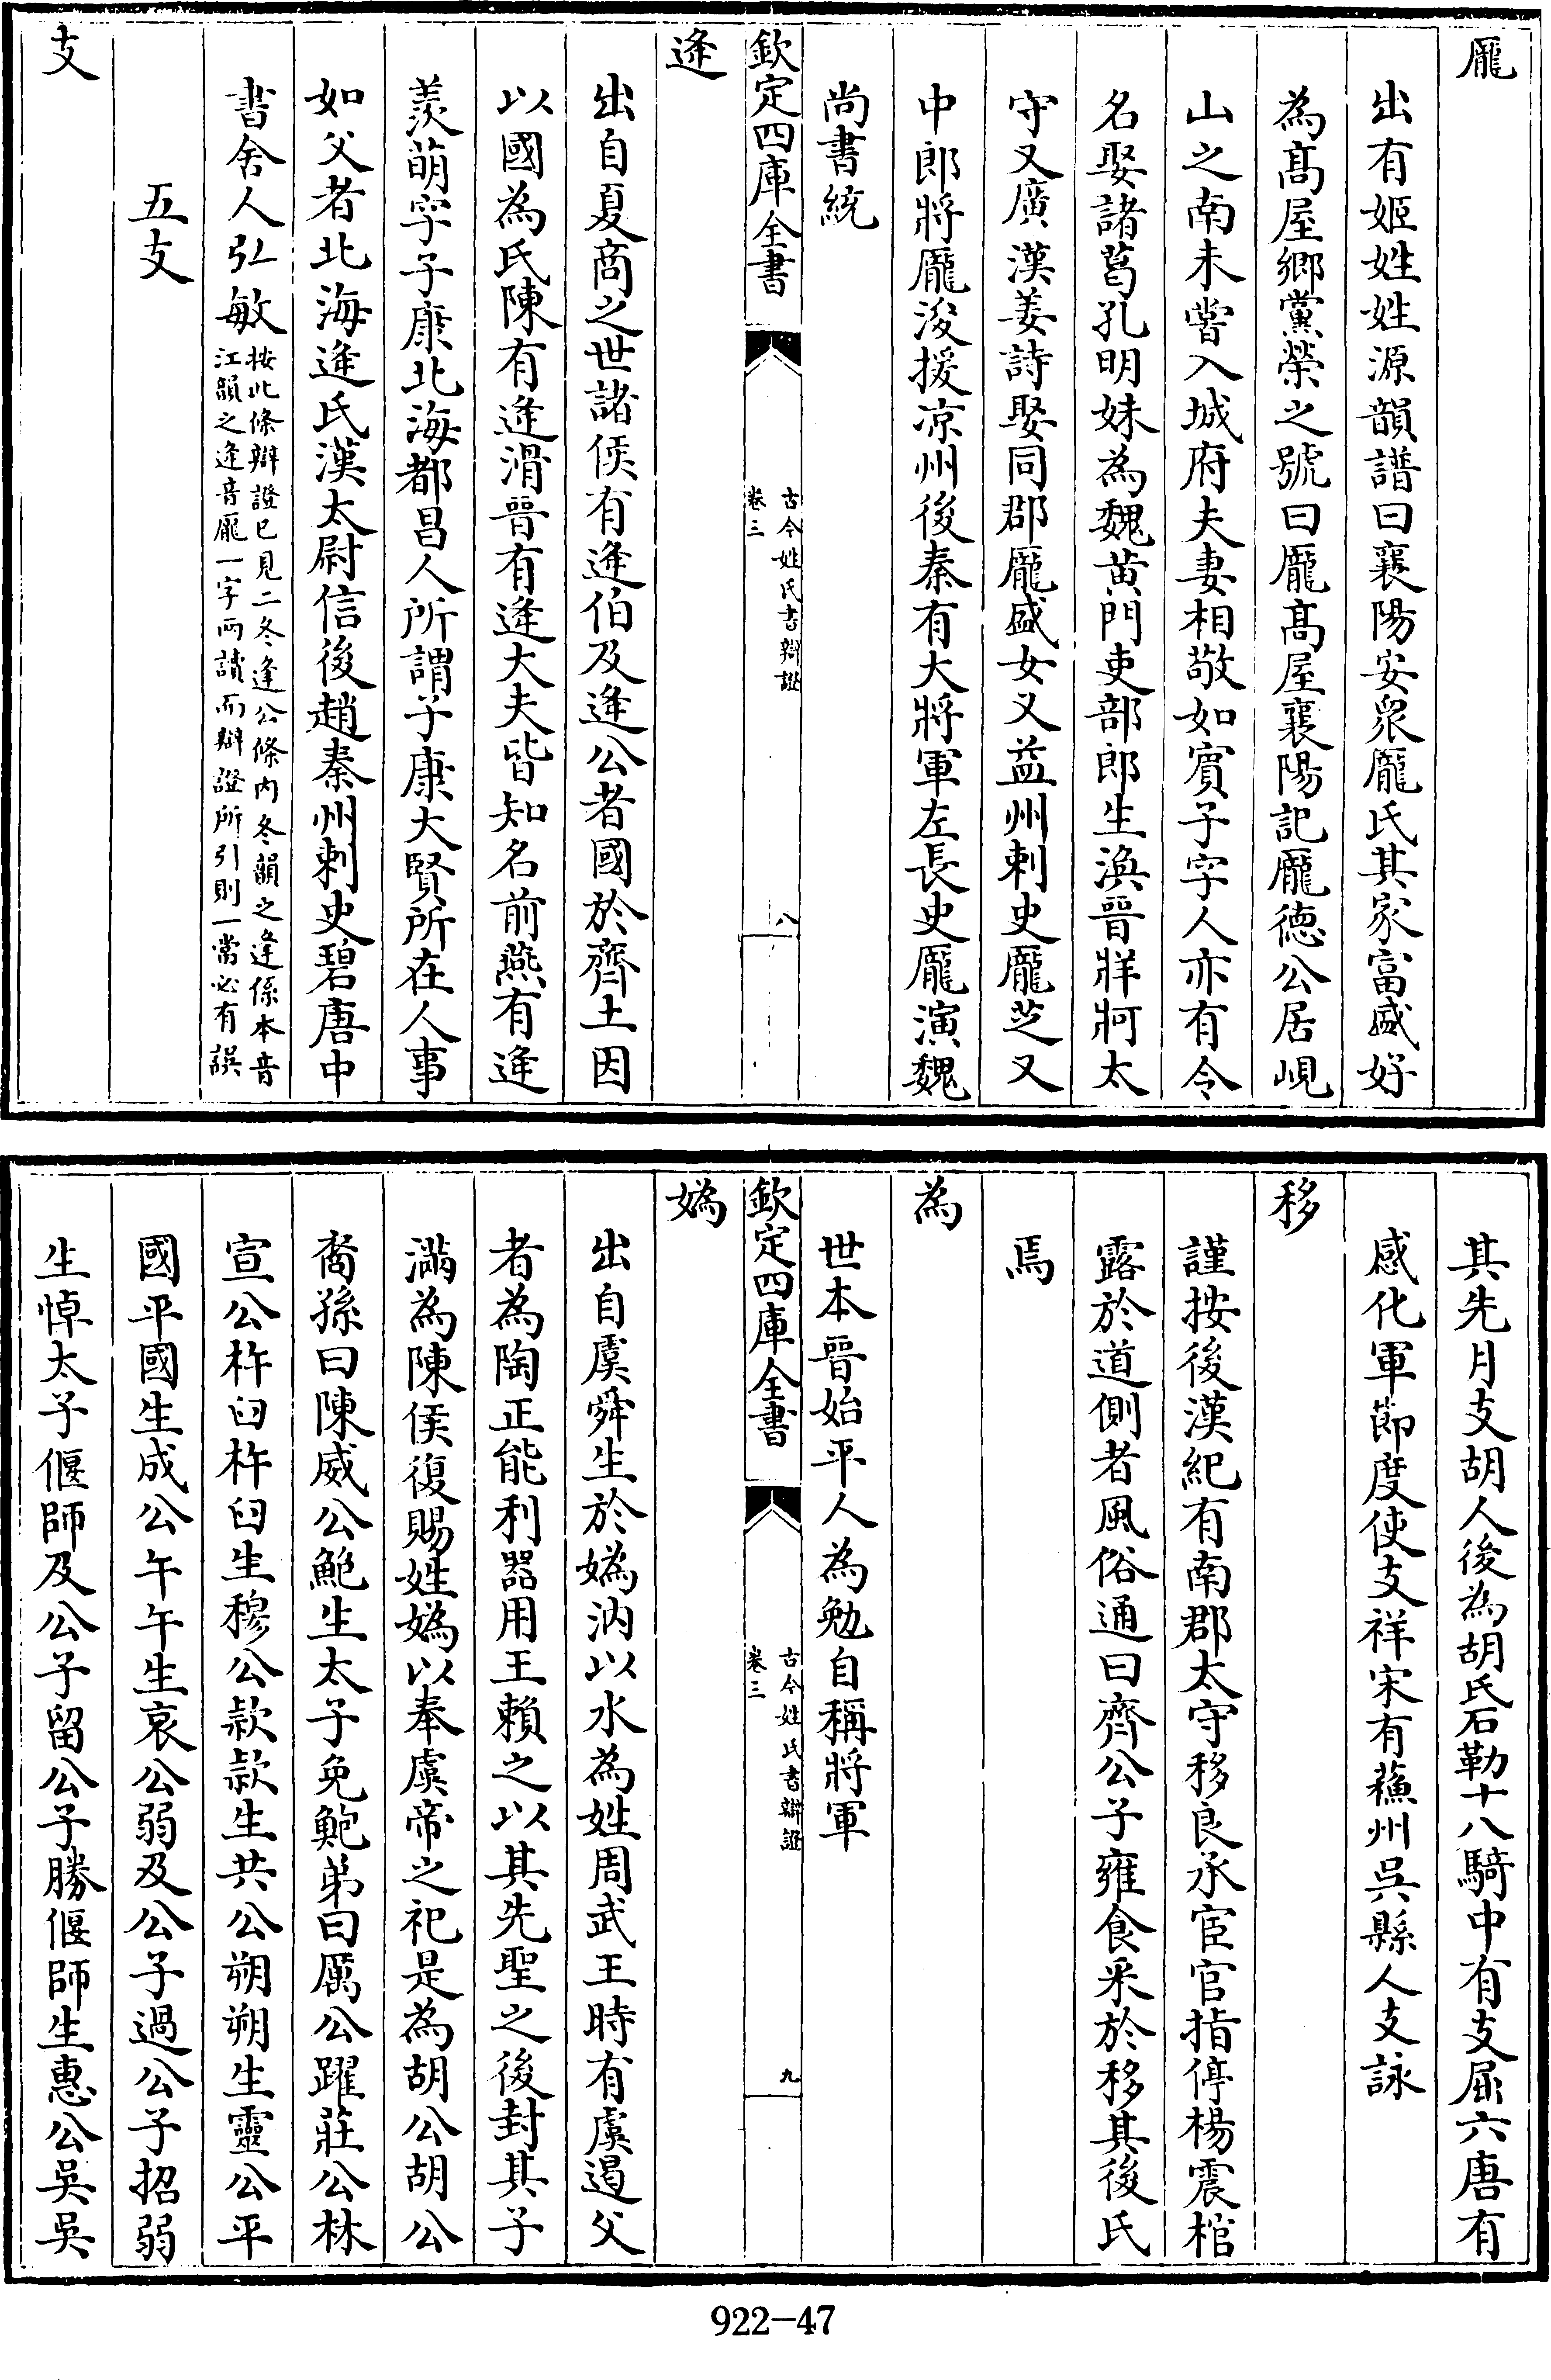 龎
出有姬姓姓源韻譜曰襄陽安衆龎氏其家富盛好
為髙屋鄉黨榮之號曰龎髙屋襄陽記龎德公居峴
山之南未嘗入城府夫妻相敬如賓子字人亦有令
名娶諸葛孔明妹為魏黄門吏部郎生渙晉牂牁太
守又廣漢姜詩娶同郡龎盛女又益州刺史龎芝又
中郎將龎浚援凉州後秦有大將軍左長史龎演魏
尚書統
欽定四庫全書
古今姓氏書辯證
卷三
八
逄
出自夏商之世諸侯有逄伯及逄公者國於齊土因
以國為氏陳有逄滑晉有逄大夫皆知名前燕有逄
羨萌字子康北海都昌人所謂子康大賢所在人事
如父者北海逄氏漢太尉信後趙秦州刺史碧唐中
書舍人弘敏按此條辯證已見二冬逄公條内冬韻之逄係本音江韻之逄音龎一字兩讀而辯證所引則一當必有誤
五支
支
其先月支胡人後為胡氏石勒十八騎中有支屈六唐有
感化軍節度使支祥宋有蘇州吳縣人支詠
移
謹按後漢紀有南郡太守移良承宦官指停楊震棺
露於道側者風俗通曰齊公子雍食采於移其後氏
焉
為
世本晉始平人為勉自稱將軍
欽定四庫全書
古今姓氏書辯證
卷三
九
嬀
出自虞舜生於嬀汭以水為姓周武王時有虞遏父
者為陶正能利器用王賴之以其先聖之後封其子
滿為陳侯復賜姓嬀以奉虞帝之祀是為胡公胡公
裔孫曰陳威公鮑生太子免鮑弟曰厲公躍莊公林
宣公杵臼杵臼生穆公款款生共公朔朔生靈公平
國平國生成公午午生哀公弱及公子過公子招弱
生悼太子偃師及公子留公子勝偃師生惠公吳吳
922-47